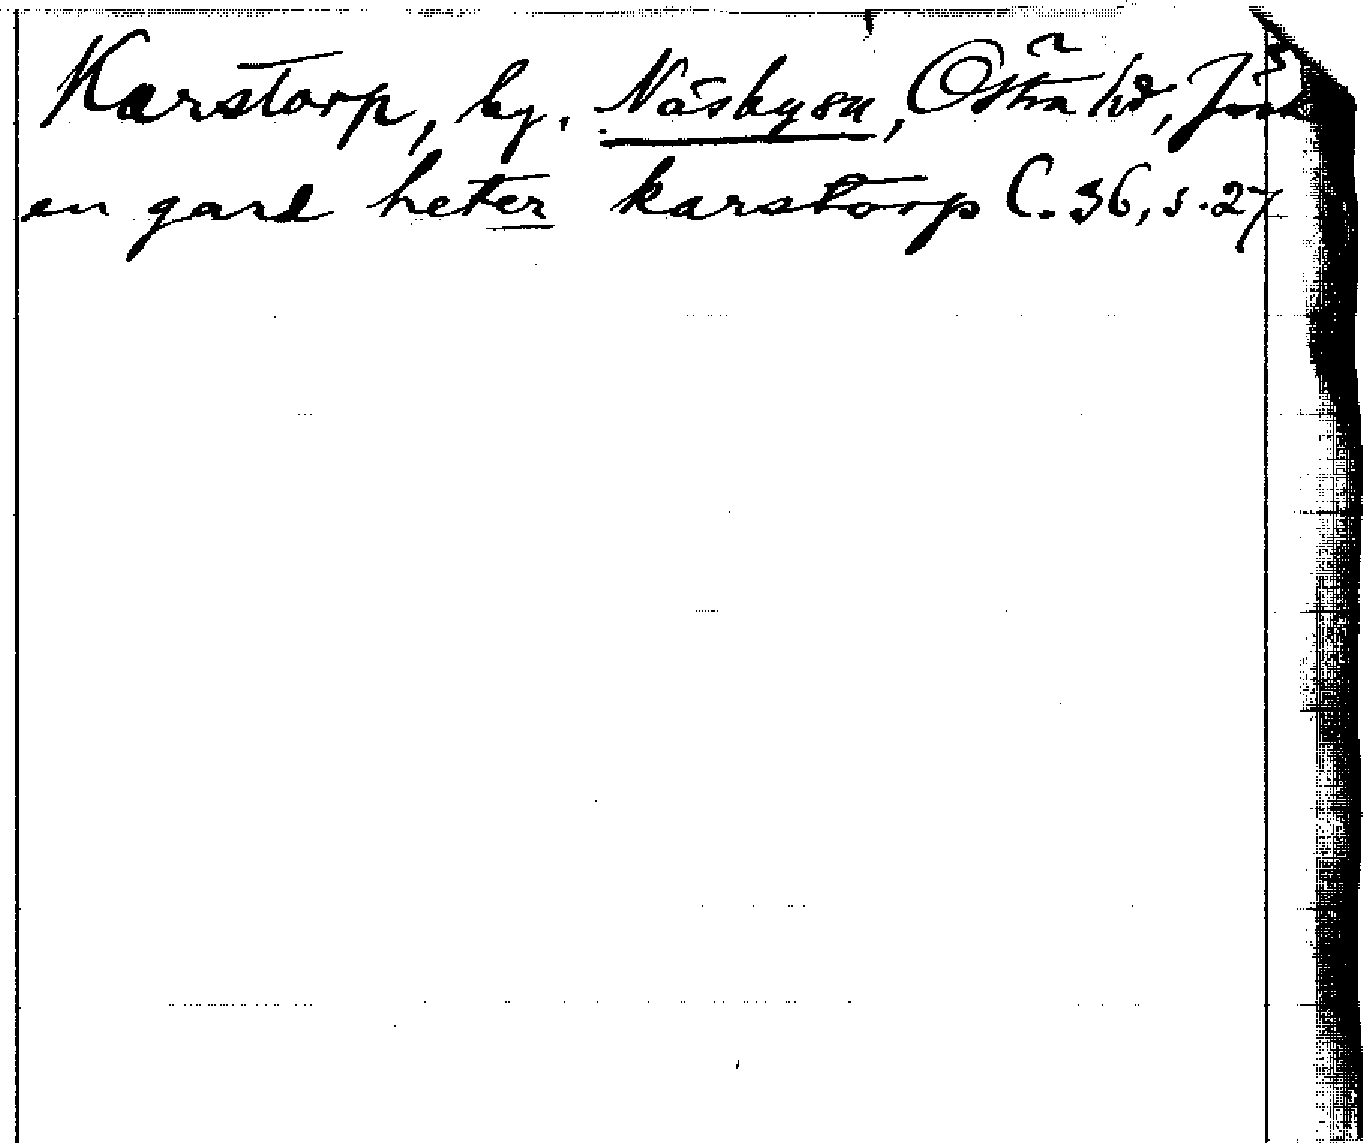 Karstorp, by, Näsby sn, Östra hd, Jönk
en gard heter karstorp C. 36, s. 27